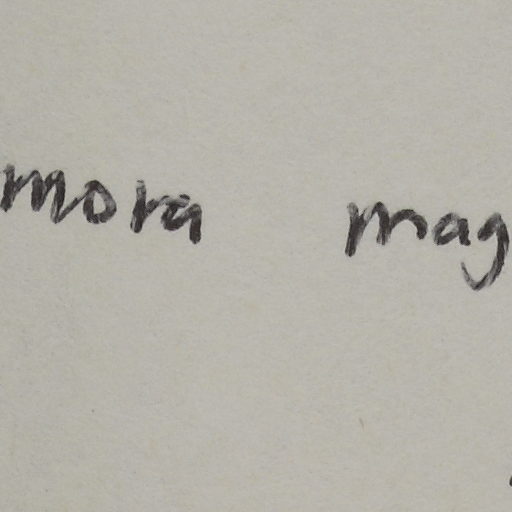 mora mag